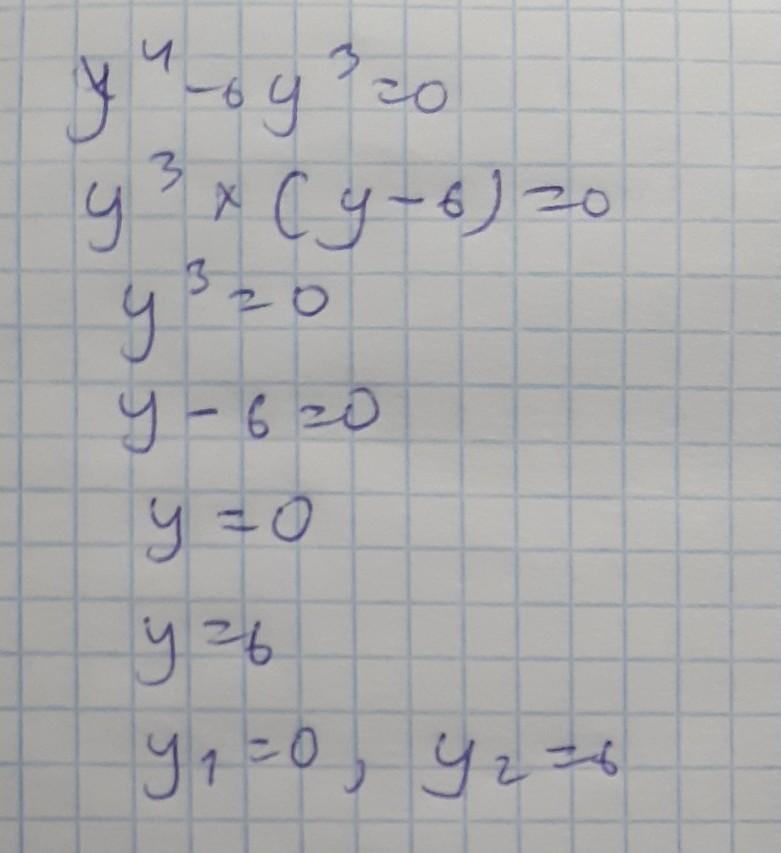 y⁴-6y³=0
y³×(y-6)=0
y³=0
y-6=0
y=0
y=6
y₁=0, y₂=6